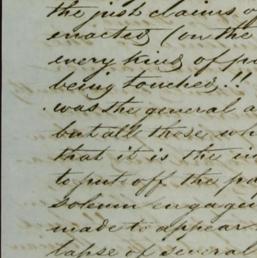 the just claims o
enacted (on the
every kind of p
being touched!!
was the general a
but all those wh
that it is the in
to put off the pa
solemn engage
made to appear
lapse of several